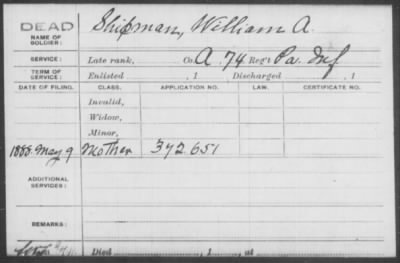 DEAD Shipman, William A.
NAME OF
SOLDIER:
SERVICE: Late rank, Co. A. 74 Reg't Pa. Inf
TERM OF
SERVICE: Enlisted , 1 Discharged , 1
DATE OF FILING. CLASS. APPLICATION NO. LAW. CERTIFICATE NO.
Invalid,
Widow,
Minor,
1888. May 9 Mother 372.651
ADDITIONAL
SERVICES:
REMARKS:
Died , 1 , at